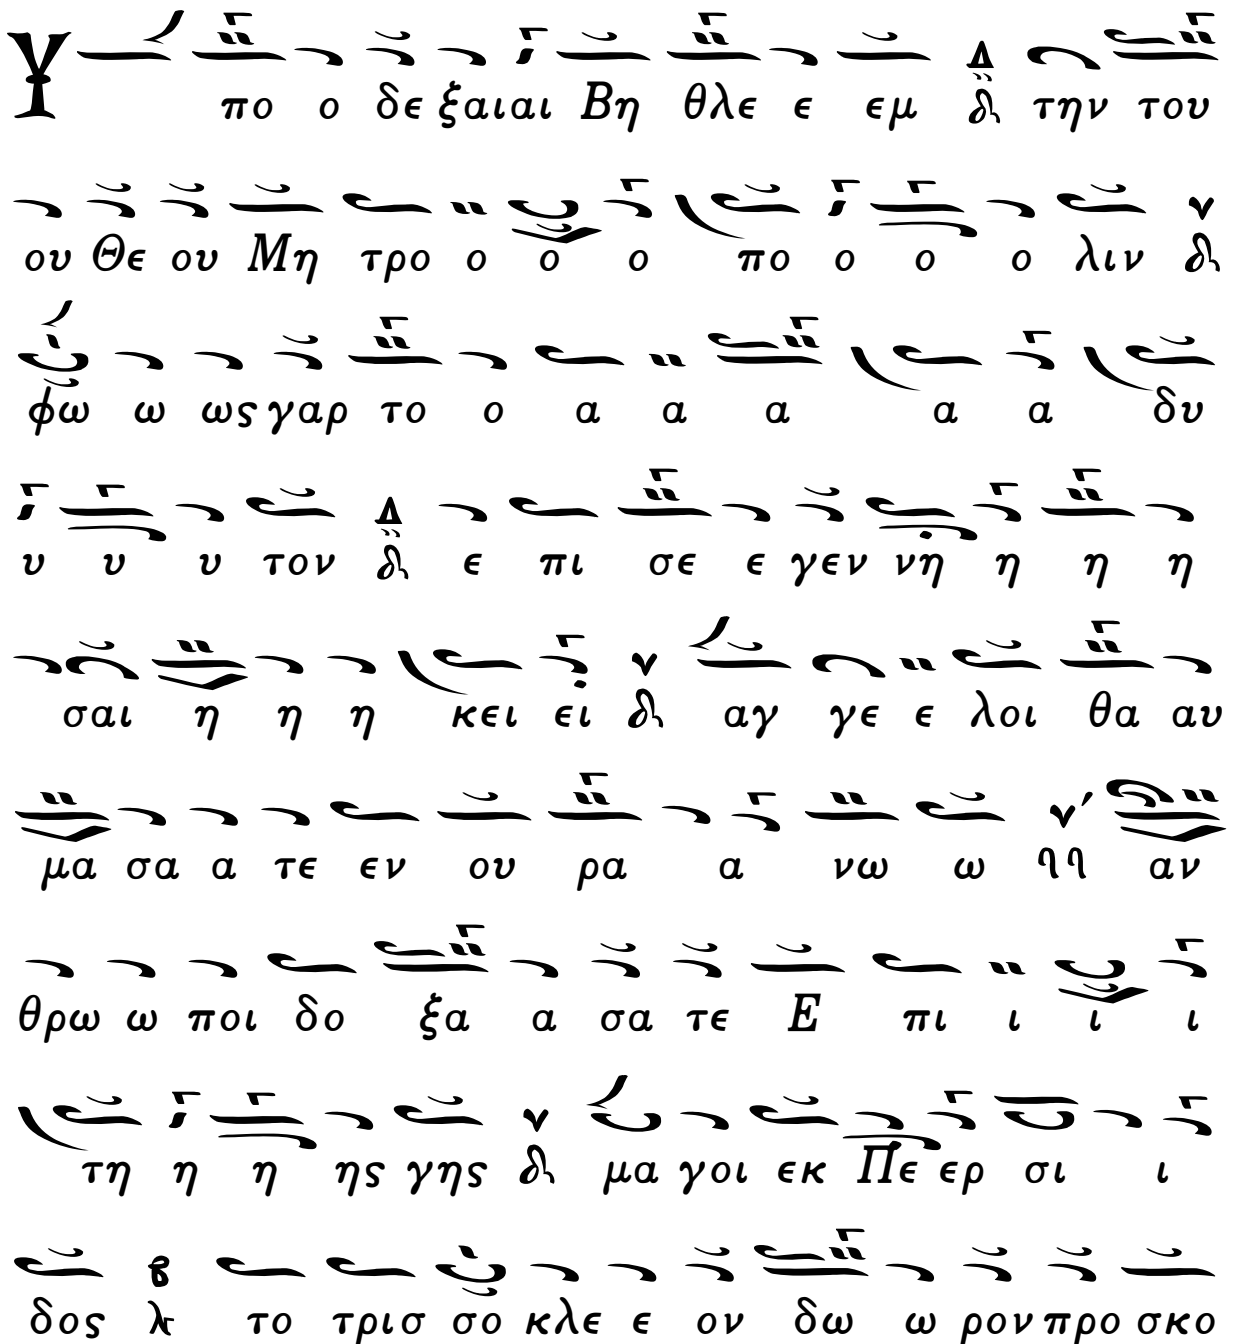 Υ πο ο δε ξαιαι Βη θλε ε εμ Δ την του
ου Θε ου Μη τρο ο ο ο πο ο ο ο λιν
φω ω ως γαρ το ο α α α α α δυ
υ υ υ τον Δ ε πι σε ε γεν νη η η η
σαι η η η κει ει αγ γε ε λοι θα αυ
μα σα α τε εν ου ρα α νω ω αν
θρω ω ποι δο ξα α σα τε Ε πι ι ι ι
τη η η ης γης μα γοι εκ Πε ερ σι ι
δος το τρισ σο κλε ε ον δω ω ρον προ σκο